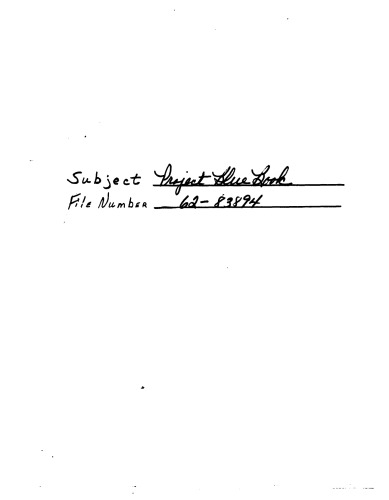 Subject Project Blue Book
File Number 62-83894